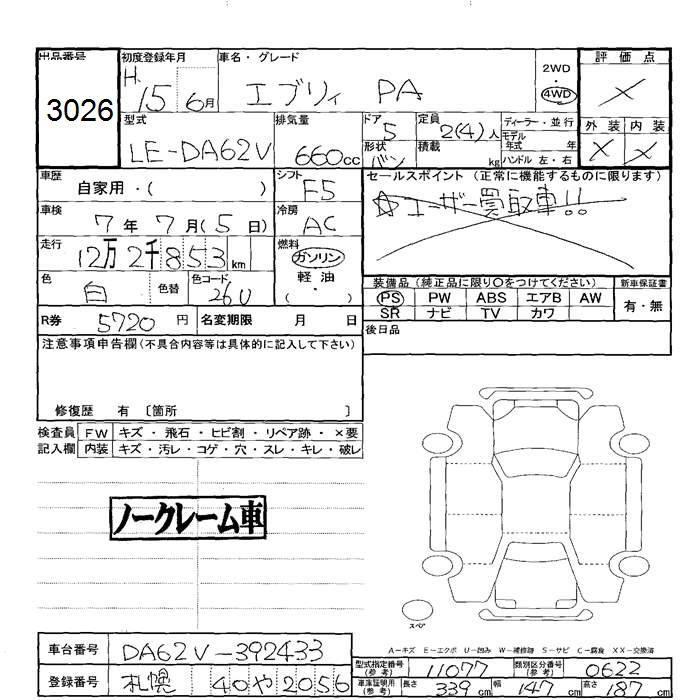 出品番号
3026
初度登録年月
H. 15 6月
車名・グレード
エブリィ PA
2WD
・
4WD
評価点
×
外装 内装
× ×
型式
LE-DA62V
排気量
660cc
ドア 5
形状 バン
定員 2(4)人
積載 kg
ディーラー・並行
モデル年式 年
ハンドル 左・右
車歴
自家用・( )
シフト
F5
車検
7年 7月(5日)
冷房
AC
走行
12万2千853km
燃料
ガソリン
軽油
・
( )
色
白
色替
色コード
26U
R券 5720円 名変期限 月 日
セールスポイント (正常に機能するものに限ります)
☆ユーザー買取車!!
装備品(純正品に限り〇をつけてください)
PS PW ABS エアB AW
SR ナビ TV カワ
新車保証書
有・無
後日品
注意事項申告欄(不具合内容等は具体的に記入して下さい)
修復歴 有 〔箇所 〕
検査員記入欄
FW キズ・飛石・ヒビ割・リペア跡・×要
内装 キズ・汚レ・コゲ・穴・スレ・キレ・破レ
ノークレーム車
スペア
A-キズ E-エクボ U-凹み W-補修跡 S-サビ C-腐食 XX-交換済
車台番号 DA62V-392433
登録番号 札幌 40 や 2056
型式指定番号(参考) 11077
類別区分番号(参考) 0622
車庫証明用(参考) 長さ 339cm 幅 147cm 高さ 187cm